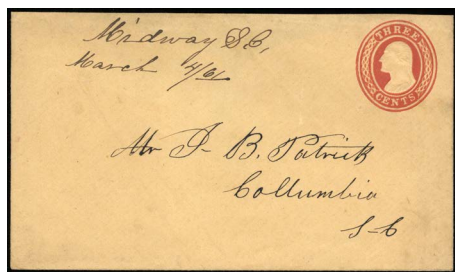 Midway S C,
March 4/61
THREE
CENTS
Mr J- B. Patrick
Collumbia
S-C